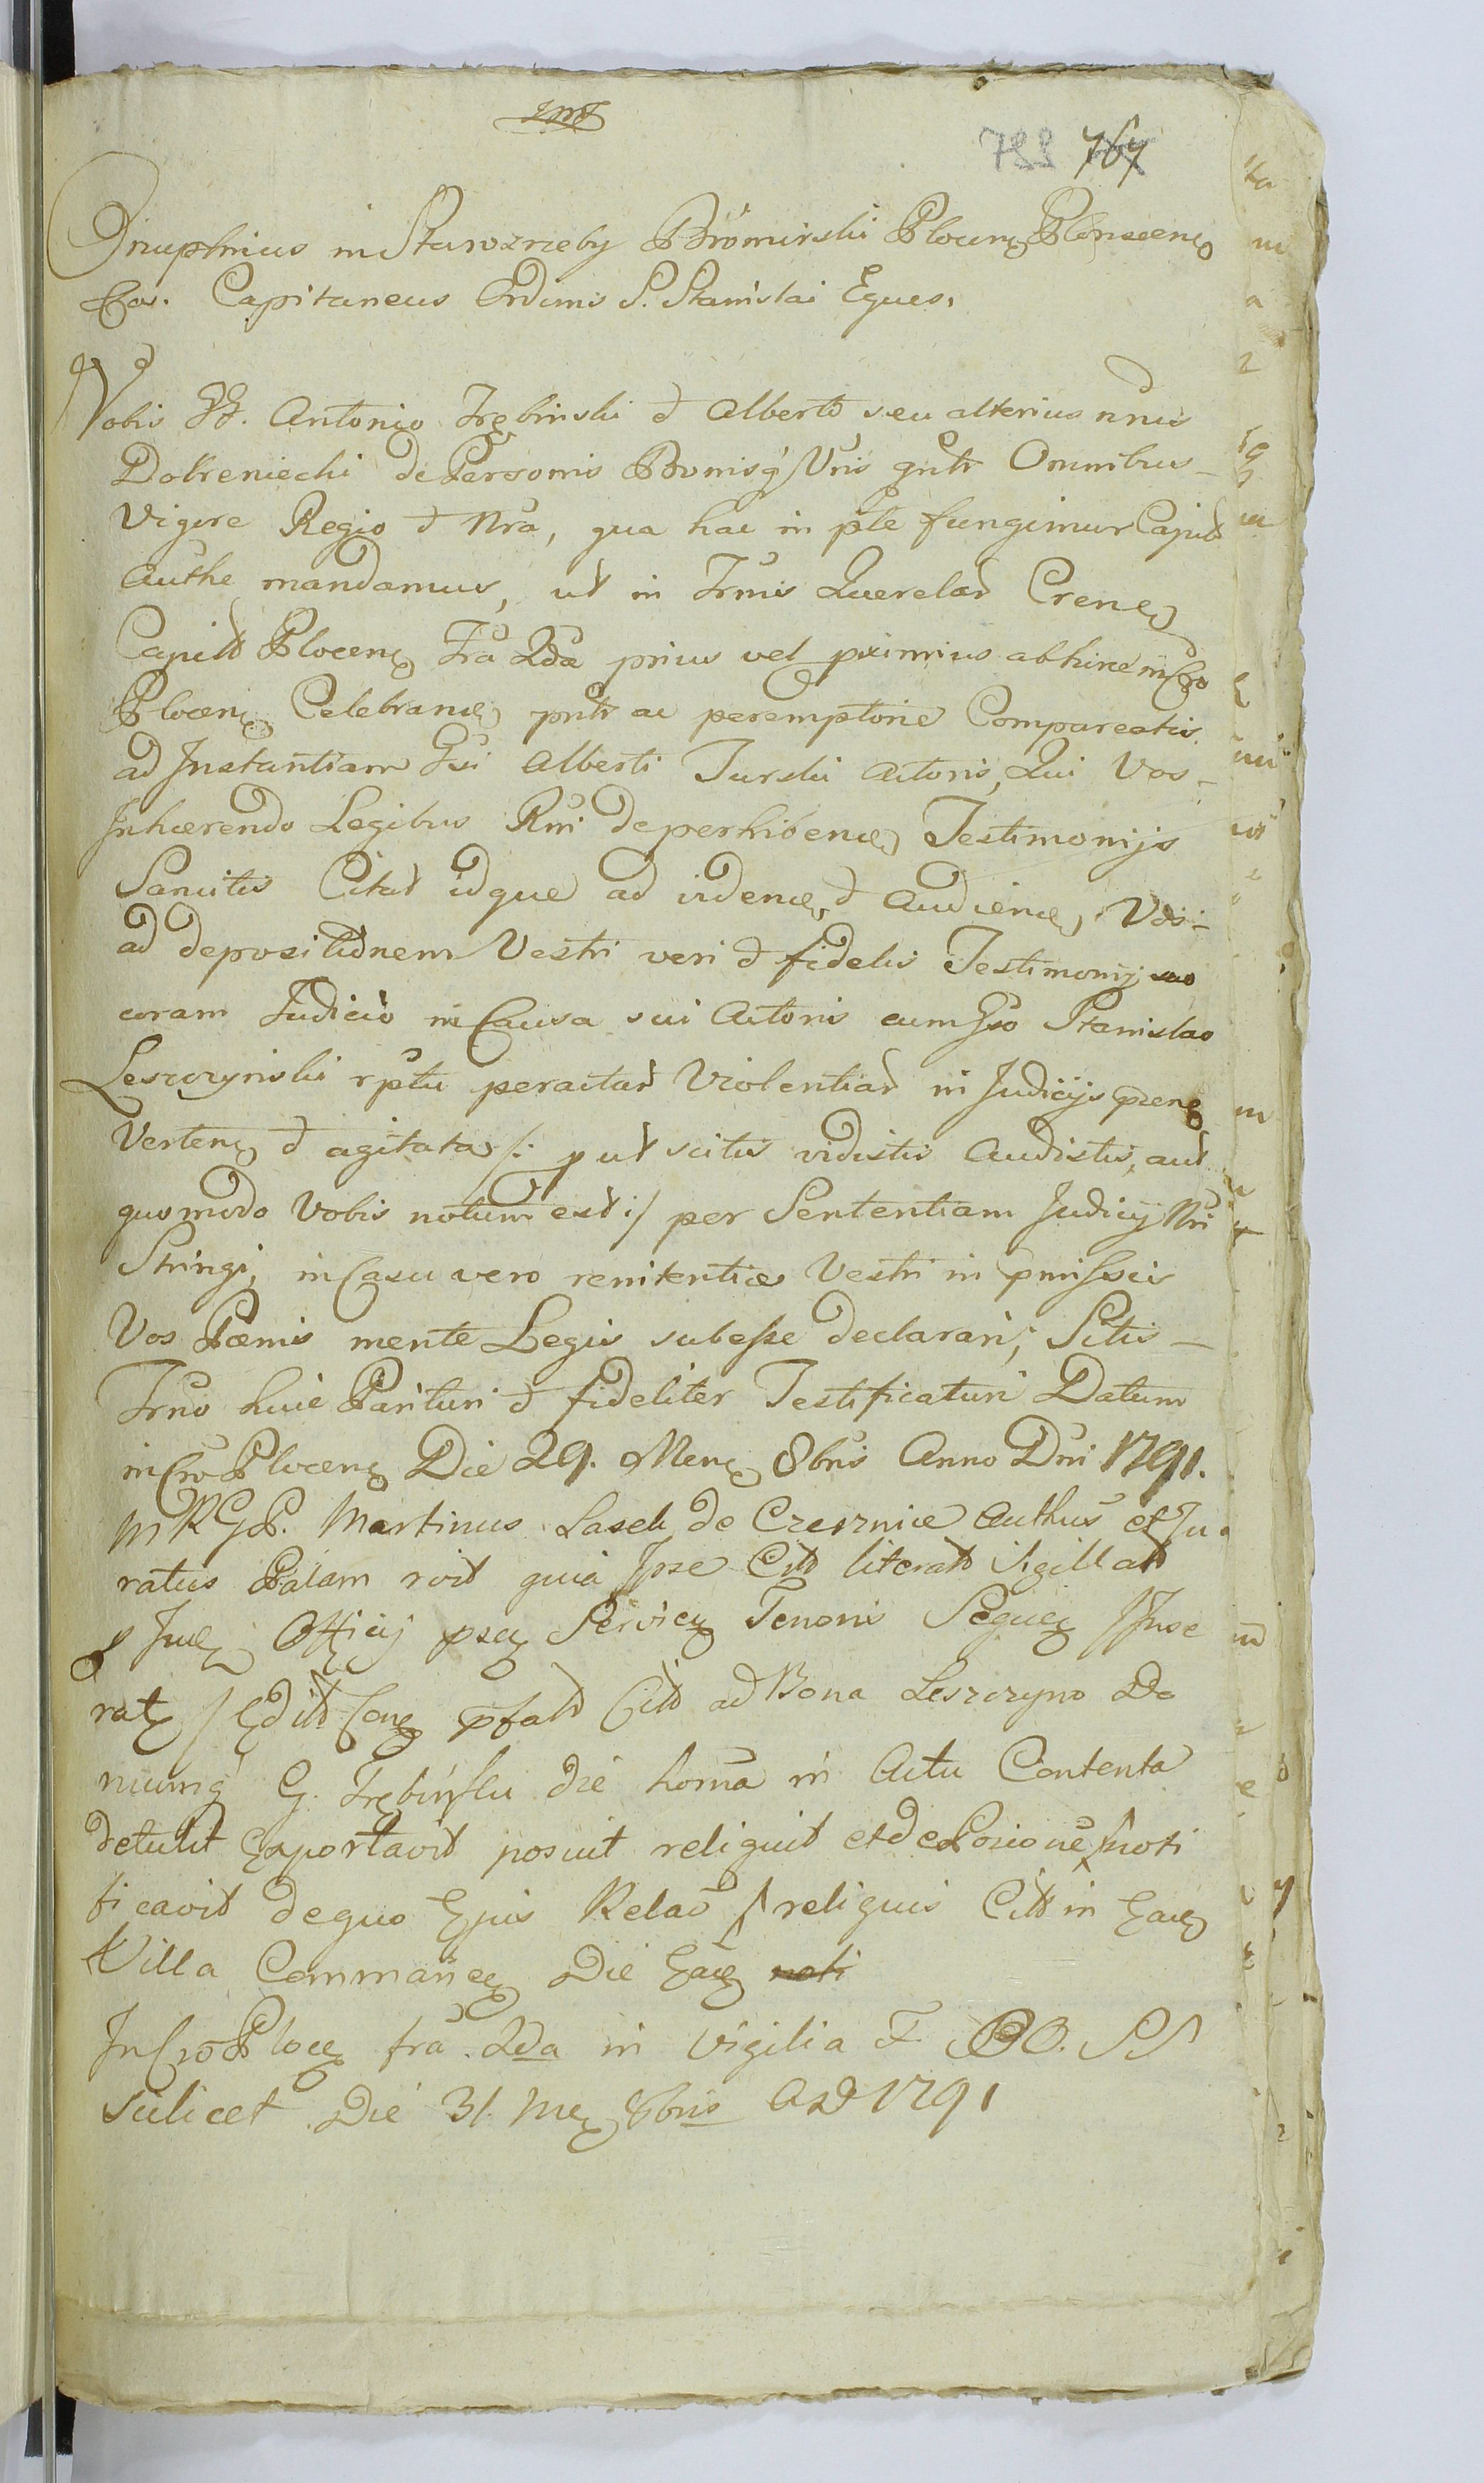 788 767
Onuphrius in Starozreby Bromirski Plocens Plonscens
Capitaneus Ordinis S. Stanislai Eques.
Vobis GG. Antonio Trębinski et Alberto, seu alterius nnis
Dobreniecki de Personis Bonisq Vris gnlr Omnibus
Vigore Regio et Nra, qua hac in pte fungimur Capit
Authe mandamus, ut in Trmis Querelar Crenę
Capit Plocenę Fra 2da prius vel pximius abhinc in Cro
Plocenę Celebranę pntr ac peremptorie Compareatis
ad Instantiam Gsi Alberti Turski Actoris, Qui Vos
Inhærendo Legibus Rni de perhibenę Testimonijs
Sancitis Citat idque ad videnę et Audienę Vos
ad depositionem Vestri veri et fidelis Testimonij
coram Judicio in Causa sui Actoris cum Gso Stanislao
Leszczynski rptu peractar Violentiar in Judicijs psenę
Vertenę et agitata /: put scitis vidistis Audistis, aut
quomodo Vobis notum est :/ per Sententiam Judicij Nri
Stringi, in Casu vero renitentiæ Vestri in pmissis
Vos Pænis mente Legis subesse declarari; Sitis
Trno huic Parituri et fideliter Testificaturi Datum
in Cro Plocenę Die 29. Menę 8bris Anno Dni 1791.
M R G P. Martinus Lasek de Czerznice Authus et Ju
ratus Palam roit quia Ipse Citt literatt sigillatt
Officij psę Servicę Tenoris Sequę Inse
ratę pfatt Citt ad Bona Leszczyno Do
niumq G. Trębinski die horna in Actu Contenta
detulit Exportavit posuit reliquit et de Posicione noti
ficavit de quo Ejus Relao reliquis Citt in Eaę
Villa Commanę Die Eaę noti
In Cro Plocę fra. 2da in Vigilia F OO. SS
scilicet Die 31 Mę 8bris AD 1791